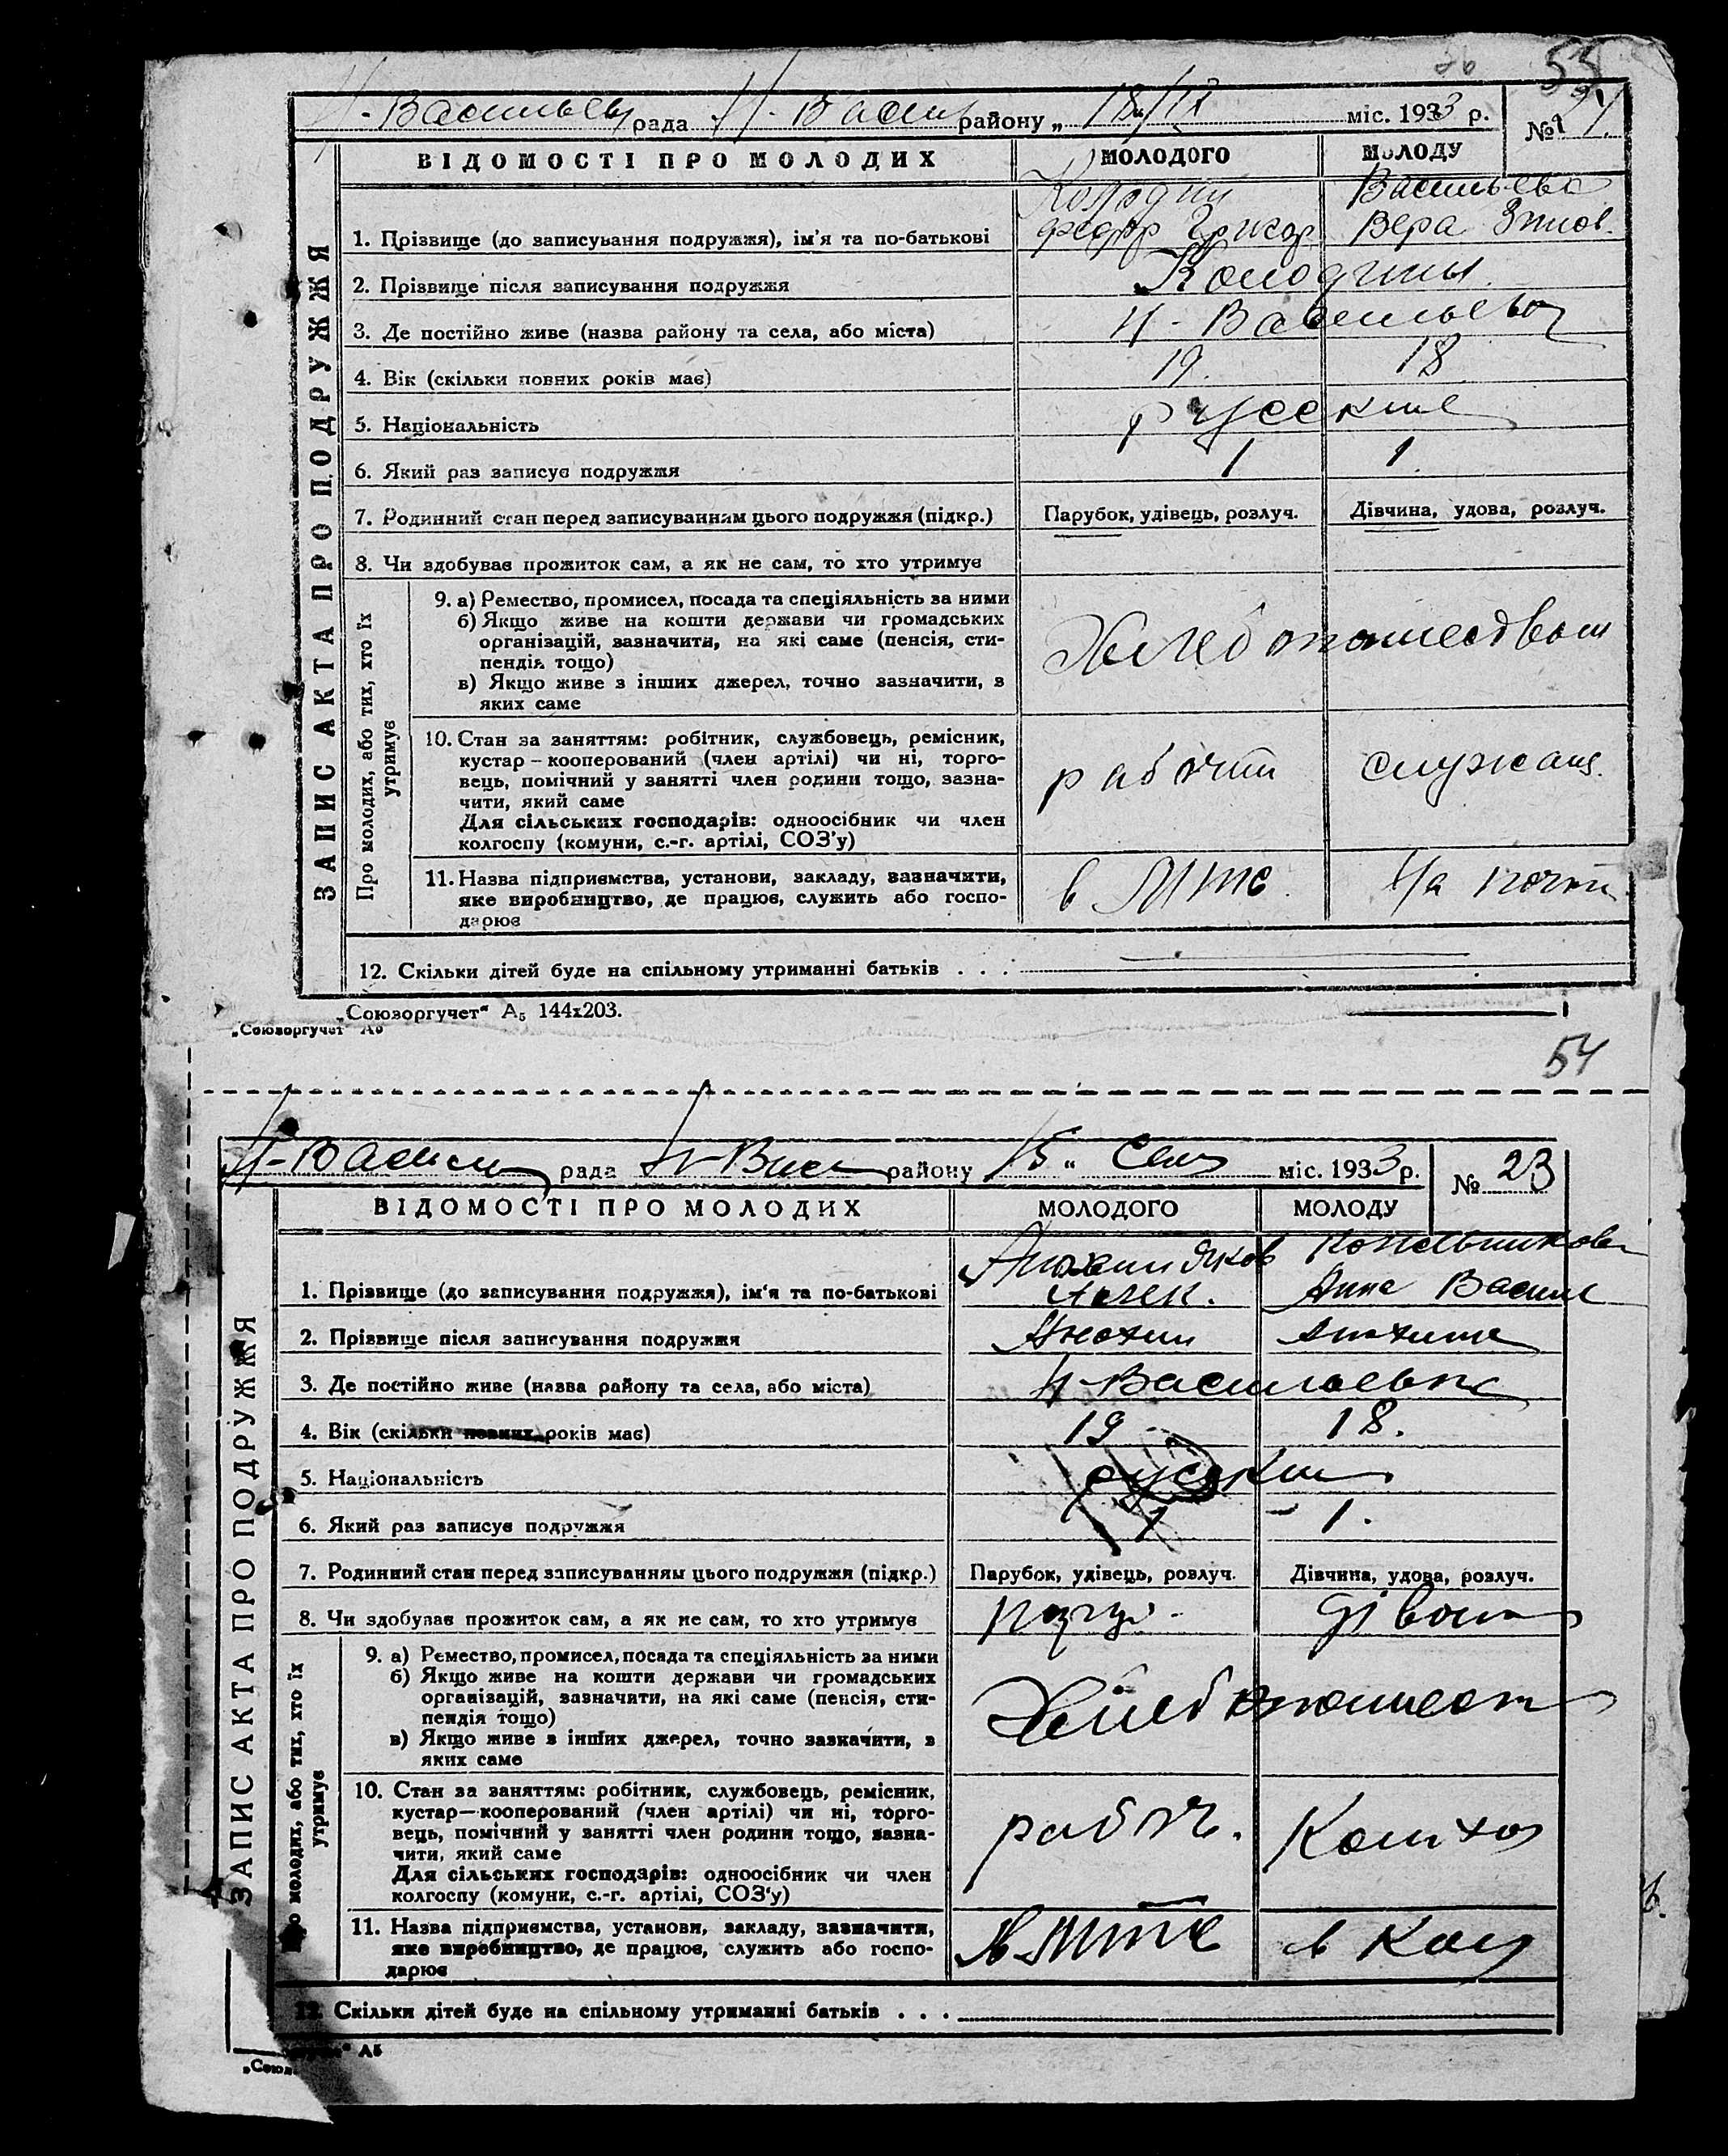 53
Н-Васильев рада Н-Васил району „ 18/IX міс. 1933 р. №
ВІДОМОСТІ ПРО МОЛОДИХ МОЛОДОГО МОЛОДУ
Колодий Васильева
1. Прізвище (до записування подружжя), ім'я та по-батькові Федор Григор Вера
2. Прізвище після записування подружжя
3. Де постійно живе (назва району та села, або міста) Н-Васильевка
4. Вік (скільки повних років має) 19. 18
5. Національність Русские
6. Який раз записує подружжя 1 1.
7. Родинний стан перед записуванням цього подружжя (підкр.) Парубок, удівець, розлуч. Дівчина, удова, розлуч.
8. Чи здобував прожиток сам, а як не сам, то хто утримує
ЗАПИС АКТА ПРО ПОДРУЖЖЯ
Про молодих, або тих, хто їх утримує
9. а) Ремество, промисел, посада та спеціяльність за ними
б) Якщо живе на кошти держави чи громадських
організацій, зазначити, на які саме (пенсія, сти-
пендія тощо)
в) Якщо живе з інших джерел, точно зазначити, в
яких саме
Хлебопашеством
10. Стан за заняттям: робітник, службовець, ремісник,
кустар – кооперований (член артілі) чи ні, торго-
вець, помічний у занятті член родини тощо, зазна-
чити, який саме
Для сільських господарів: одноосібник чи член
колгоспу (комуни, с.-г. артілі, СОЗ'у)
рабочий служащ.
11. Назва підприємства, установи, закладу, зазначити,
яке виробництво, де працює, служить або госпо-
дарює
в МТС. На почте
12. Скільки дітей буде на спільному утриманні батьків . . .
„Союзоргучет“ А5 144x203.
„Союзоргучет“ А5
54
Н-Васил рада Н-Вас району 15 „ Сен міс. 1933 р. № 23
ВІДОМОСТІ ПРО МОЛОДИХ МОЛОДОГО МОЛОДУ
Анохин Яков Котельникова
1. Прізвище (до записування подружжя), ім'я та по-батькові Алек. Анна Васил
2. Прізвище після записування подружжя Анохин Анохина
3. Де постійно живе (назва району та села, або міста) Н-Васильевка
4. Вік (скільки повних років має) 19 18.
5. Національність русские
6. Який раз записує подружжя 1 - 1.
7. Родинний стан перед записуванням цього подружжя (підкр.) Парубок, удівець, розлуч. Дівчина, удова, розлуч.
8. Чи здобував прожиток сам, а як не сам, то хто утримує
ЗАПИС АКТА ПРО ПОДРУЖЖЯ
Про молодих, або тих, хто їх утримує
9. а) Ремество, промисел, посада та спеціяльність за ними
б) Якщо живе на кошти держави чи громадських
організацій, зазначити, на які саме (пенсія, сти-
пендія тощо)
в) Якщо живе з інших джерел, точно зазначити, в
яких саме
Хлебопашест
10. Стан за заняттям: робітник, службовець, ремісник,
кустар—кооперований (член артілі) чи ні, торго-
вець, помічний у занятті член родини тощо, зазна-
чити, який саме
Для сільських господарів: одноосібник чи член
колгоспу (комуни, с.-г. артілі, СОЗ'у)
рабоч. Колхоз
11. Назва підприємства, установи, закладу, зазначити,
яке виробництво, де працює, служить або госпо-
дарює
в МТС в Колх
12. Скільки дітей буде на спільному утриманні батьків . . .